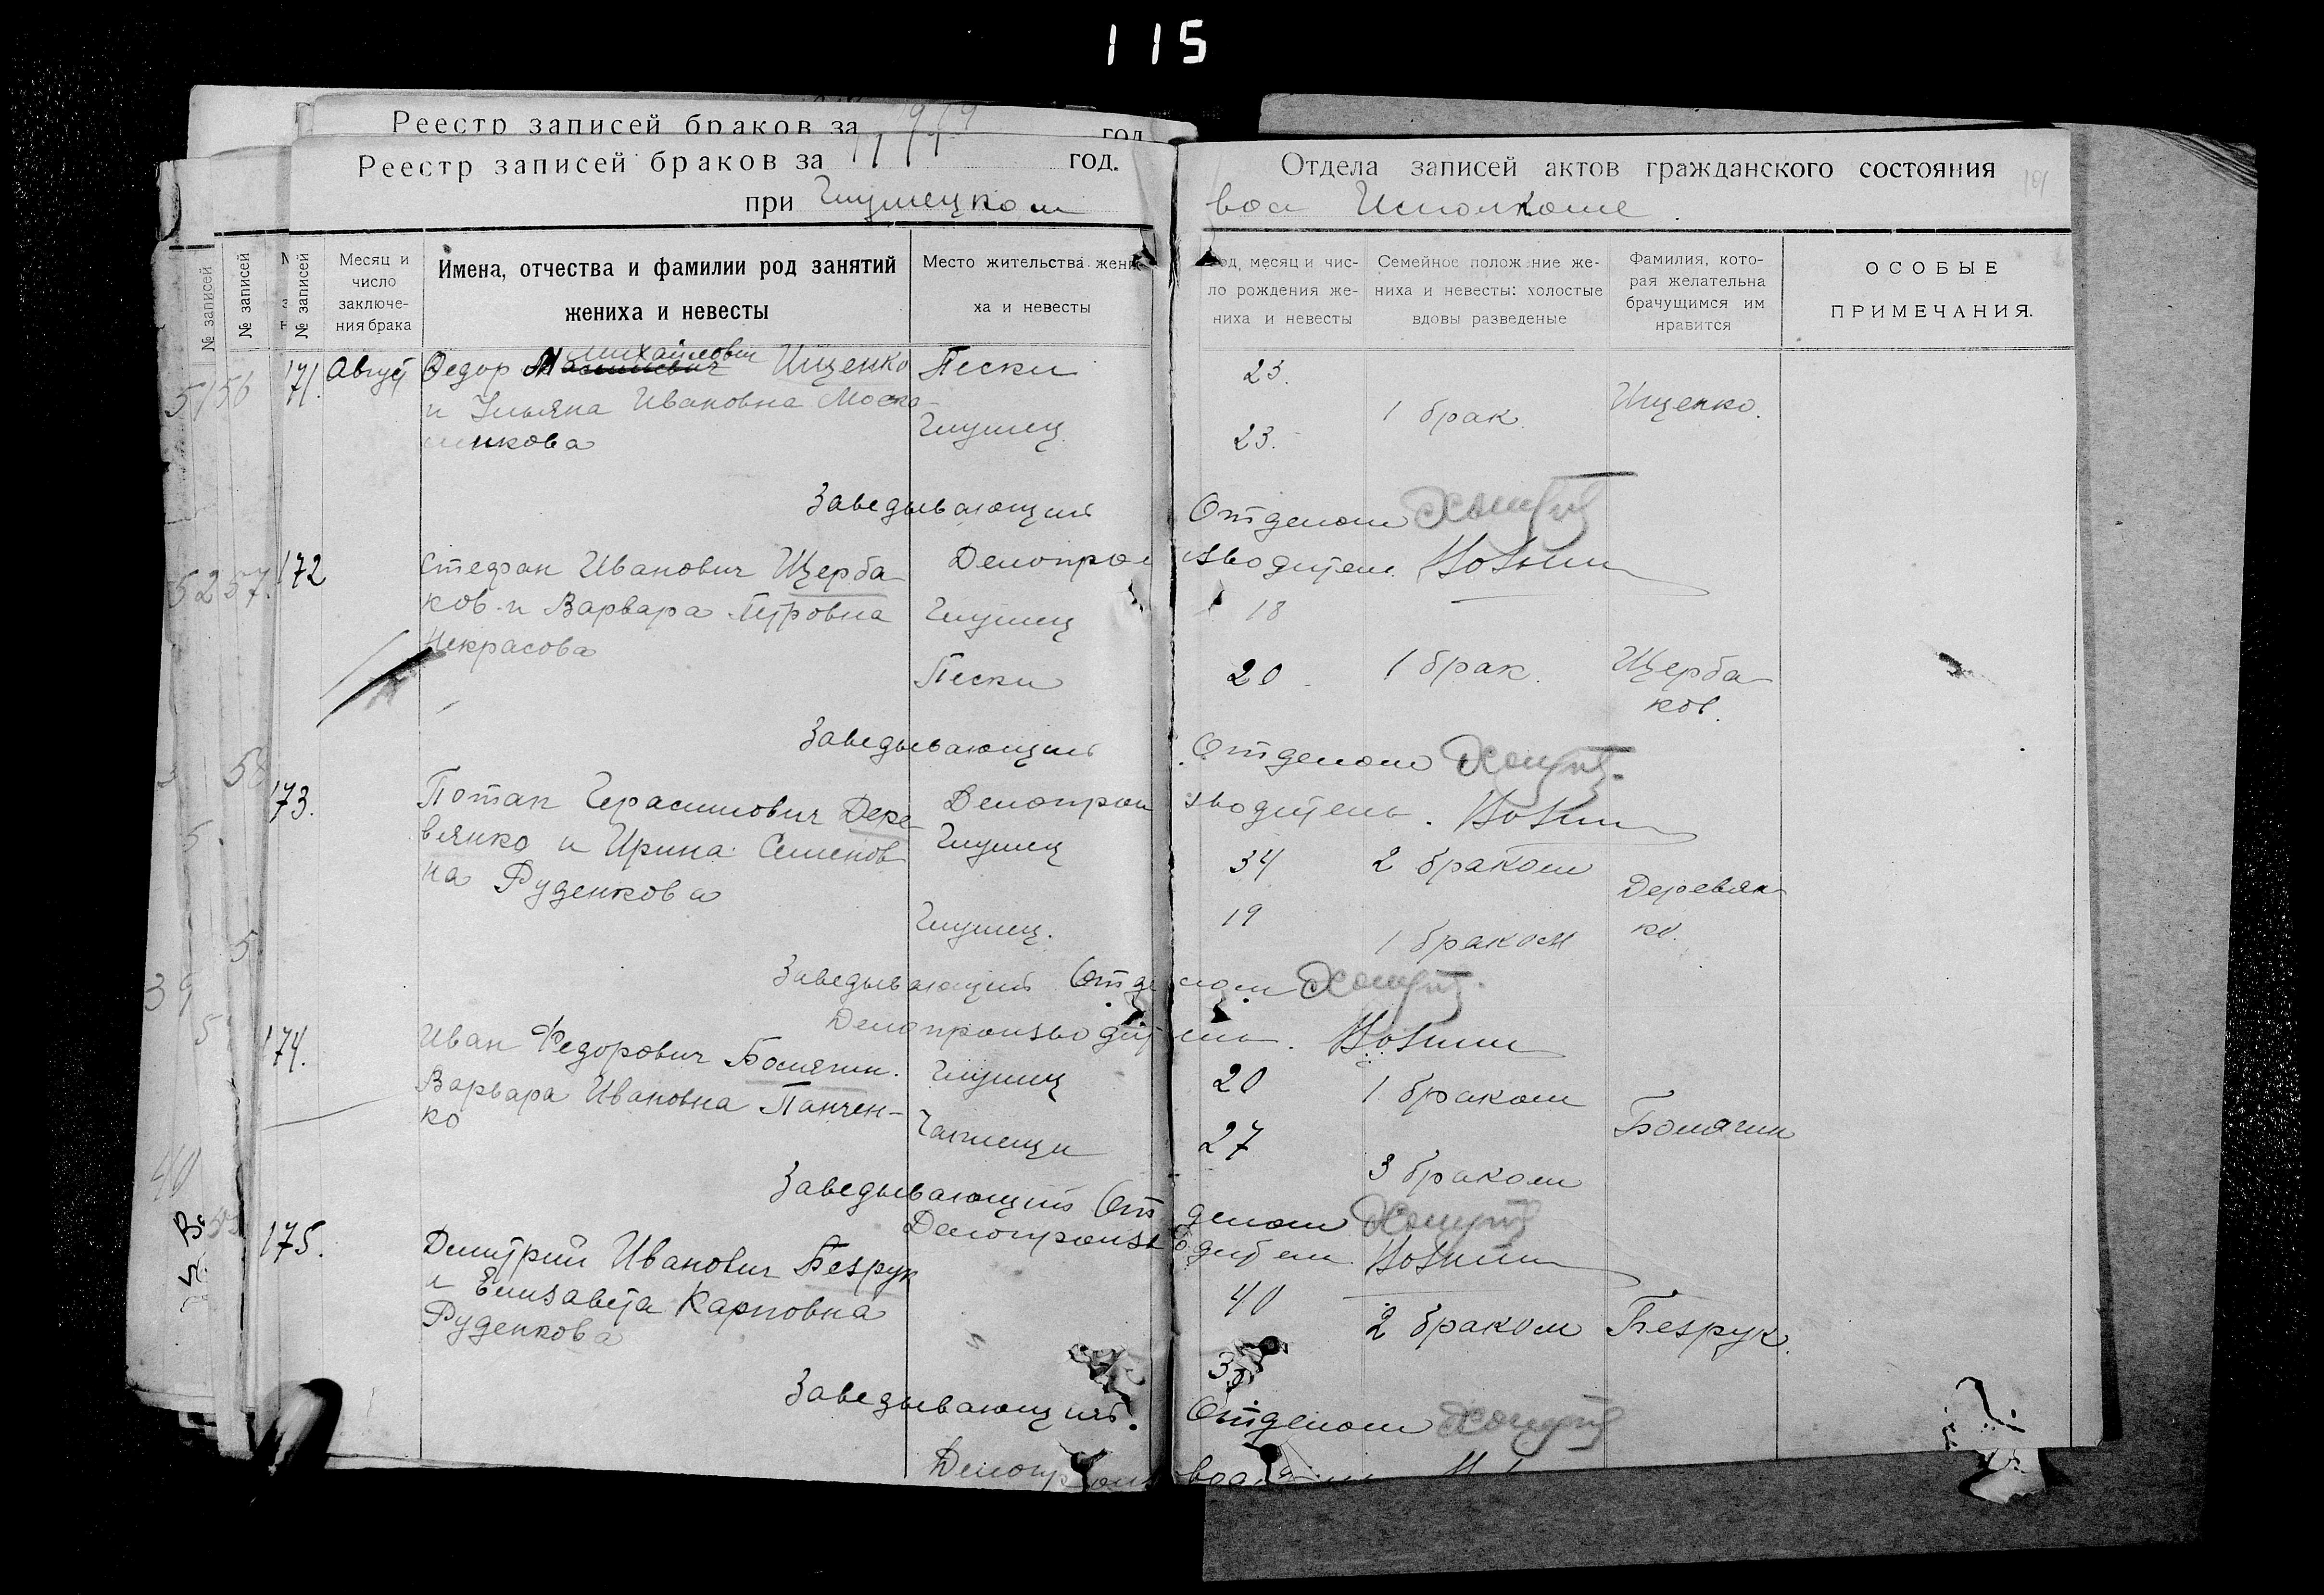 115
Реестр записей браков за 1919 год
Реестр записей браков за год.
при Глушецком
Отдела записей актов гражданского состояния
вол Исполкоме
101
№ записей
№ записей
№ записей
Месяц и число заключения брака
Имена, отчества и фамилии род занятий
жениха и невесты
Место жительства жени
ха и невесты
од, месяц и чис-
ло рождения же-
ниха и невесты
Семейное положение же-
ниха и невесты: холостые
вдовы разведеные
Фамилия, кото-
рая желательна
брачущимся им
нравится
ОСОБЫЕ
ПРИМЕЧАНИЯ.
51 56 171. Август
Михайлович
Федор Ищенко Пески 23.
и Ульяна Ивановна Моска-
шикова Глушец 23.
1 брак Ищенко.
Заведывающий Отделом
172 Делопроизводитель
52 57.
Стефан Иванович Щерба
ков и Варвара Петровна Глушец 18
Некрасова
Пески 20 1 брак. Щерба
ков.
Заведывающий Отделом
58
173. Потап Герасимович Дере Делопроизводитель.
вянко и Ирина Семенов Глушец 34 2 браком
на Руденкова Деревян
Глушец. 19 1 браком ко.
Заведывающий Отделом
39
Делопроизводитель.
174. Иван Федорович Бомячин. Глушец 20 1 браком
Варвара Ивановна Панчен-
ко 27 3 браком Бомячин
40
Заведывающий Отделом
Делопроизводитель
175. Димитрий Иванович Безрук 40
и Елизавета Карповна 2 браком Безрук.
Руденкова
Заведывающий. Отделом